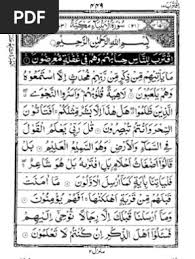 PDF
بِسْمِ اللهِ الرَّحْمٰنِ الرَّحِيْمِ
اِقْتَرَبَ لِلنَّاسِ حِسَابُهُمْ وَهُمْ فِيْ غَفْلَةٍ مُّعْرِضُوْنَ
مَا يَاْتِيْهِمْ مِّنْ ذِكْرٍ مِّنْ رَّبِّهِمْ مُّحْدَثٍ اِلَّا اسْتَمَعُوْهُ
وَهُمْ يَلْعَبُوْنَ لَاهِيَةً قُلُوْبُهُمْ وَاَسَرُّوا النَّجْوَى الَّذِيْنَ
ظَلَمُوْا هَلْ هٰذَا اِلَّا بَشَرٌ مِّثْلُكُمْ اَفَتَاْتُوْنَ السِّحْرَ وَاَنْتُمْ
تُبْصِرُوْنَ قٰلَ رَبِّيْ يَعْلَمُ الْقَوْلَ فِي السَّمَآءِ وَالْاَرْضِ
وَهُوَ السَّمِيْعُ الْعَلِيْمُ بَلْ قَالُوْا اَضْغَاثُ اَحْلَامٍ بَلِ افْتَرٰىهُ بَلْ هُوَ شَاعِرٌ
فَلْيَاْتِنَا بِاٰيَةٍ كَمَا اُرْسِلَ الْاَوَّلُوْنَ مَا اٰمَنَتْ
قَبْلَهُمْ مِّنْ قَرْيَةٍ اَهْلَكْنٰهَا اَفَهُمْ يُؤْمِنُوْنَ
وَمَا اَرْسَلْنَا قَبْلَكَ اِلَّا رِجَالًا نُّوْحِيْ اِلَيْهِمْ
فَسْـَٔلُوْا اَهْلَ الذِّكْرِ اِنْ كُنْتُمْ لَا تَعْلَمُوْنَ